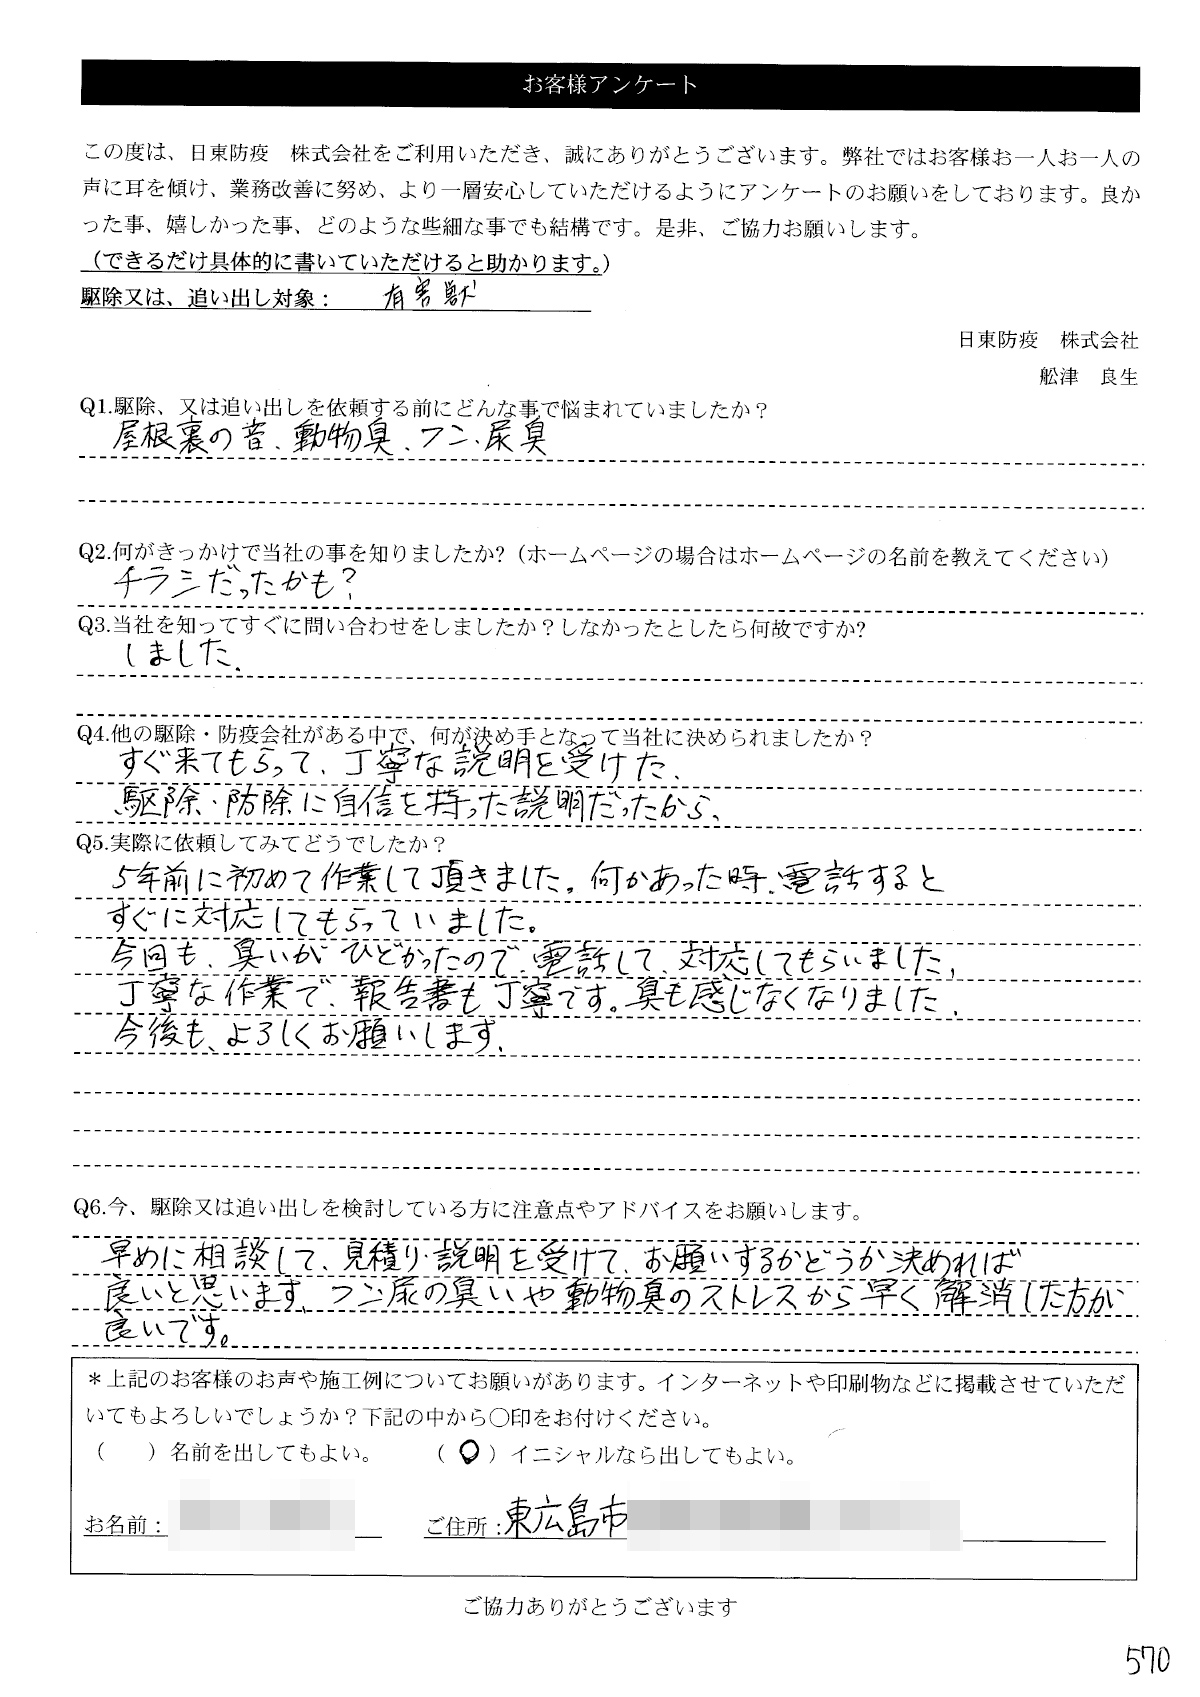 お客様アンケート
この度は、日東防疫　株式会社をご利用いただき、誠にありがとうございます。弊社ではお客様お一人お一人の
声に耳を傾け、業務改善に努め、より一層安心していただけるようにアンケートのお願いをしております。良か
った事、嬉しかった事、どのような些細な事でも結構です。是非、ご協力お願いします。
（できるだけ具体的に書いていただけると助かります。）
駆除又は、追い出し対象：　有害獣
日東防疫　株式会社
舩津　良生
Q1.駆除、又は追い出しを依頼する前にどんな事で悩まれていましたか？
屋根裏の音、動物臭、フン、尿臭
Q2.何がきっかけで当社の事を知りましたか?（ホームページの場合はホームページの名前を教えてください）
チラシだったかも？
Q3.当社を知ってすぐに問い合わせをしましたか？しなかったとしたら何故ですか?
しました、
Q4.他の駆除・防疫会社がある中で、何が決め手となって当社に決められましたか？
すぐ来てもらって、丁寧な説明を受けた、
駆除・防除に自信を持った説明だったから、
Q5.実際に依頼してみてどうでしたか？
5年前に初めて作業して頂きました。何かあった時、電話すると
すぐに対応してもらっていました。
今回も、臭いがひどかったので、電話して、対応してもらいました、
丁寧な作業で、報告書も丁寧です。臭も感じなくなりました、
今後も、よろしくお願いします、
Q6.今、駆除又は追い出しを検討している方に注意点やアドバイスをお願いします。
早めに相談して、見積り・説明を受けて、お願いするかどうか決めれば
良いと思います、フン尿の臭いや動物臭のストレスから早く解消した方が
良いです。
＊上記のお客様のお声や施工例についてお願いがあります。インターネットや印刷物などに掲載させていただ
いてもよろしいでしょうか？下記の中から〇印をお付けください。
（　　）名前を出してもよい。　　（〇）イニシャルなら出してもよい。
お名前：　　ご住所：東広島市
ご協力ありがとうございます
570